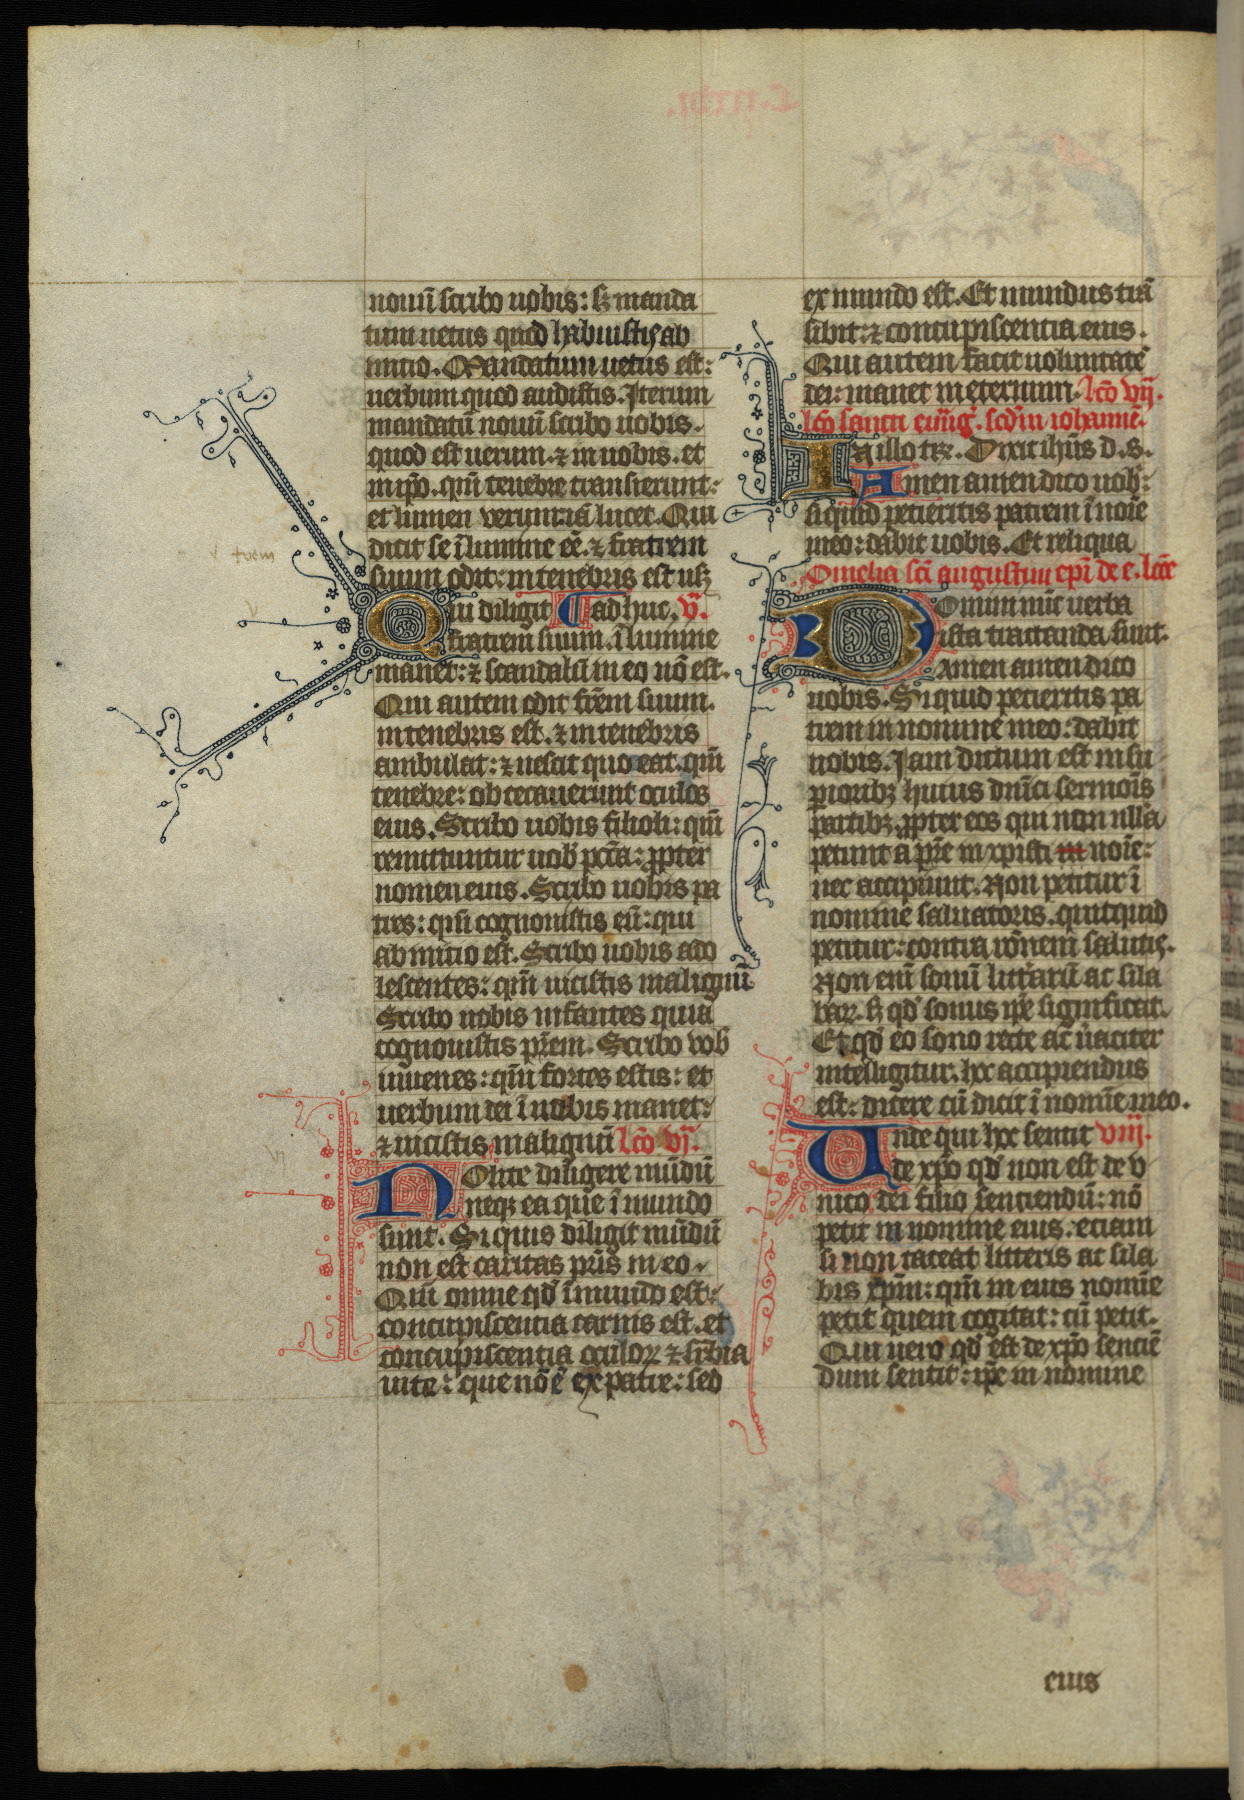 nouū scribo uobis: sꝫ manda
tum uetus quod habuistis ab
initio. Mandatum uetus est:
uerbum quod audistis. Iterum
mandatū nouū scribo uobis.
quod est uerum. ⁊ in uobis. et
in ip̄o. qm̄ tenebre transierunt:
et lumen verum iā lucet. Qui
dicit se ī lumine eē. ⁊ fratrem
suum odit: in tenebris est usqꝫ
Qui diligit adhuc. v.
fratrem suum. ī lumine
manet: ⁊ scandalū in eo nō est.
Qui autem odit fr̄em suum.
in tenebris est. ⁊ in tenebris
ambulat: ⁊ nescit quo eat. qm̄
tenebre: obcecauerunt oculos
eius. Scribo uobis filioli: qm̄
remittuntur uob̄ pcc̄a: ꝓpter
nomen eius. Scribo uobis pa
tres: qm̄ cognouistis eū: qui
ab initio est. Scribo uobis ado
lescentes: qm̄ uicistis malignū
Scribo uobis infantes quia
cognouistis pr̄em. Scribo vob̄
iuuenes: qm̄ fortes estis: et
uerbum dei ī uobis manet:
⁊ uicistis malignū lc̄o vj.
Nolite diligere mūdū
neqꝫ ea que ī mundo
sunt. Si quis diligit mūdū
non est caritas pr̄is in eo.
Qm̄ omne qd̄ ī mundo est:
concupiscentia carnis est. et
concupiscentia oculoꝝ ⁊ suꝑbia
uite: que nō ē ex patre: sed
ex mundo est. Et mundus trā
sibit: ⁊ concupiscentia eius.
Qui autem facit uoluntatē
dei: manet in eternum. lc̄o vij.
lc̄o sancti euāḡ. scd̄m iohannē.
In illo tꝑꝛ. Dixit ih̄us d. s.
Amen amen dico uob̄:
si quid petieritis patrem ī noīe
meo: dabit uobis. Et reliqua
Omelia sc̄i augustini ep̄i de e. lcc̄e
Domini nr̄i uerba
ista tractanda sunt.
Amen amen dico
uobis. Si quid petieritis pa
trem in nomine meo: dabit
uobis. Iam dictum est in su
ꝑioribꝫ huius dn̄ici sermoīs
partibꝫ. ꝓpter eos qui non nlla
petunt a pr̄e in xp̄isti noīe:
nec accipiunt. Non petitur ī
nomine saluatoris. quicquid
petitur: contra rōnem salutis.
Non enī sonū litt̄arū ac sila
baꝝ. sꝫ qd̄ sonus ip̄e significat.
Et qd̄ eo sono recte ac u̅aciter
intelligitur. hoc accipiendus
est: dicere cū dicit ī nomīe meo.
Unde qui hoc sentit viij.
de xp̄o qd̄ non est de v
nico dei filio sentiendū: nō
petit in nomine eius. etiam
si non taceat litteris ac sila
bis xp̄m: qm̄ in eius nomīe
petit quem cogitat: cū petit.
Qui uero qd̄ est de xp̄o sentiē
dum sentit: ip̄e in nomine
eius